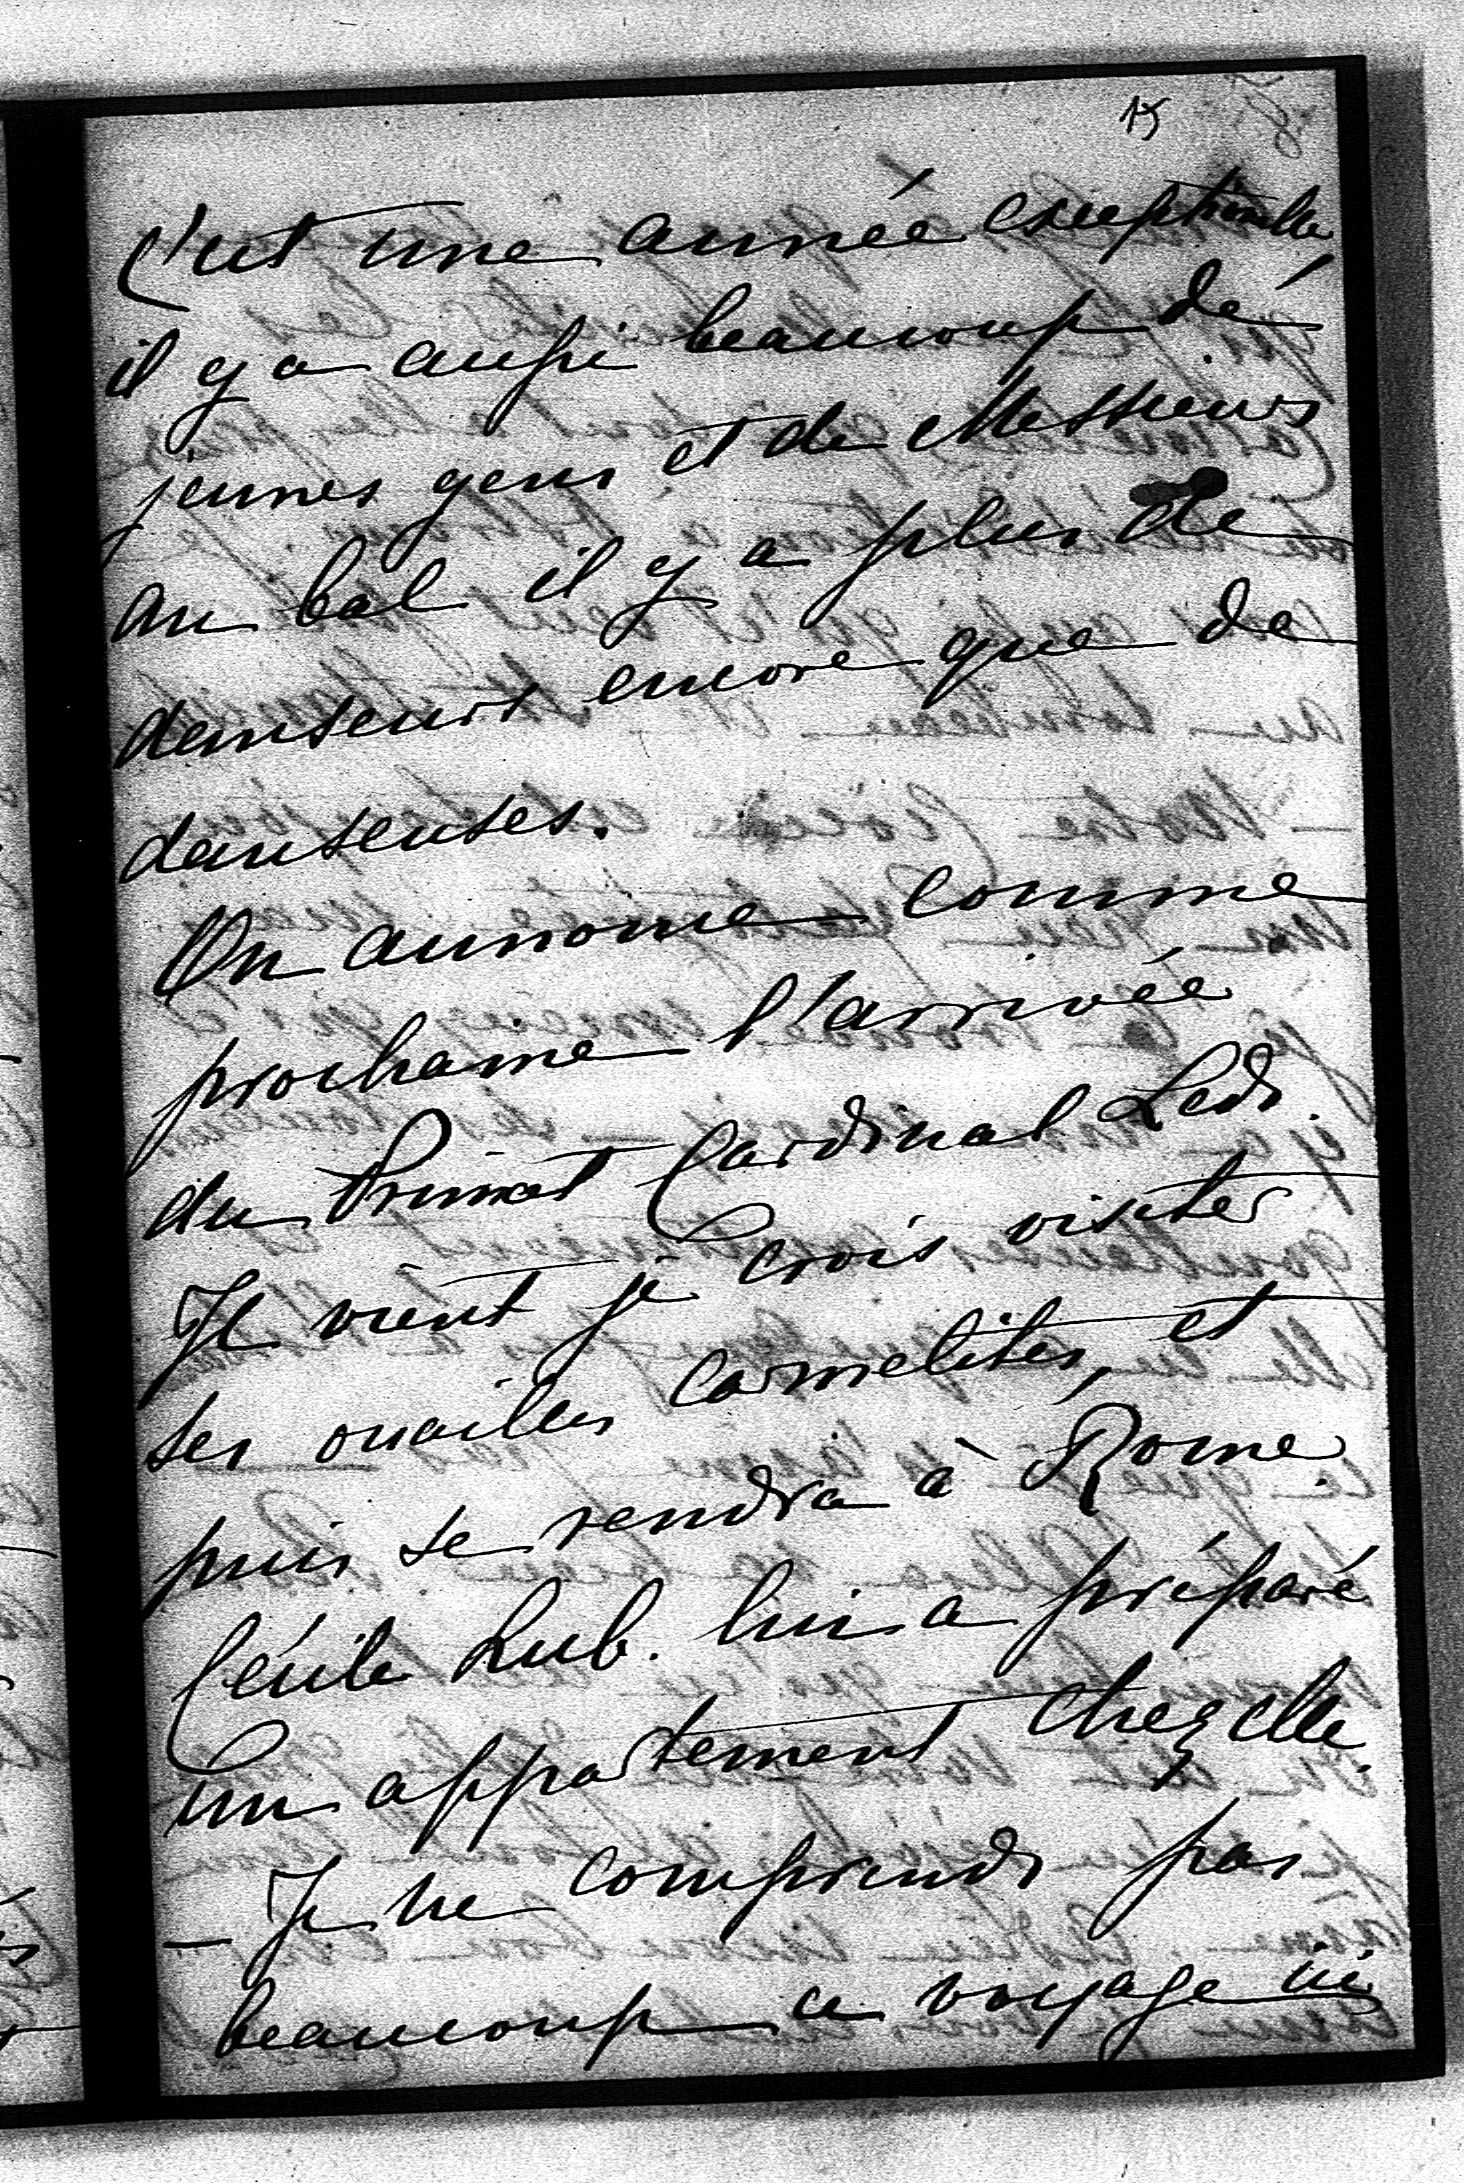 15
C'est une année exceptionelle
il y a aussi beaucoup de
jeunes gens et de Messieurs
au bal il y a plus de
danseurs encore que de
danseuses.
On annonce comme
prochaine l'arrivée
du Primat Cardinal Led.
Il vient je crois visiter
ses ouailles carmelites, et
puis se rendra à Rome
Cécile Lub. lui a préparé
un appartement chez elle.
– Je ne comprends pas
beaucoup ce voyage ici